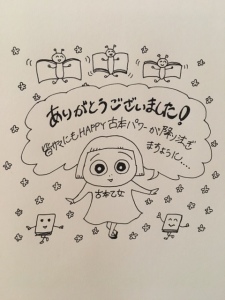 ありがとうございました!
皆サマにも、HAPPY古本パワーが降り注ぎ
ますように…
古本乙女